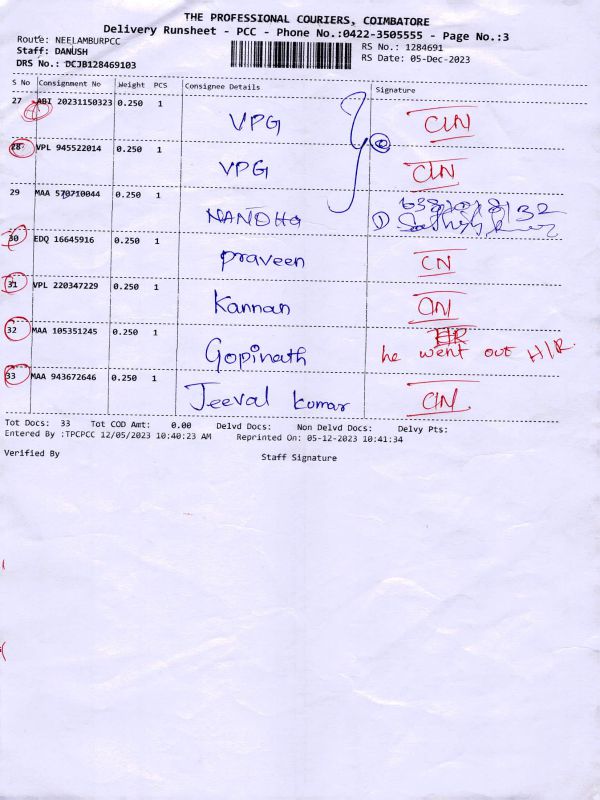 THE PROFESSIONAL COURIERS, COIMBATORE
Delivery Runsheet - PCC - Phone No.:0422-3505555 - Page No.:3
Route: NEELAMBURPCC
RS No.: 1284691
Staff: DANUSH
RS Date: 05-Dec-2023
DRS No.: DCJB128469103
S No Consignment No Weight PCS Consignee Details Signature
27 ABI 20231150323 0.250 1 VPG CLN
28 VPL 945522014 0.250 1 VPG CLN
29 MAA 570710044 0.250 1 NANDHA
30 EDQ 16645916 0.250 1 praveen CN
31 VPL 220347229 0.250 1 Kannan
32 MAA 105351245 0.250 1 Gopinath he went out H/R.
33 MAA 943672646 0.250 1 Jeeval kumar
Tot Docs: 33 Tot COD Amt: 0.00 Delvd Docs: Non Delvd Docs: Delvy Pts:
Entered By :TPCPCC 12/05/2023 10:40:23 AM Reprinted On: 05-12-2023 10:41:34
Verified By Staff Signature